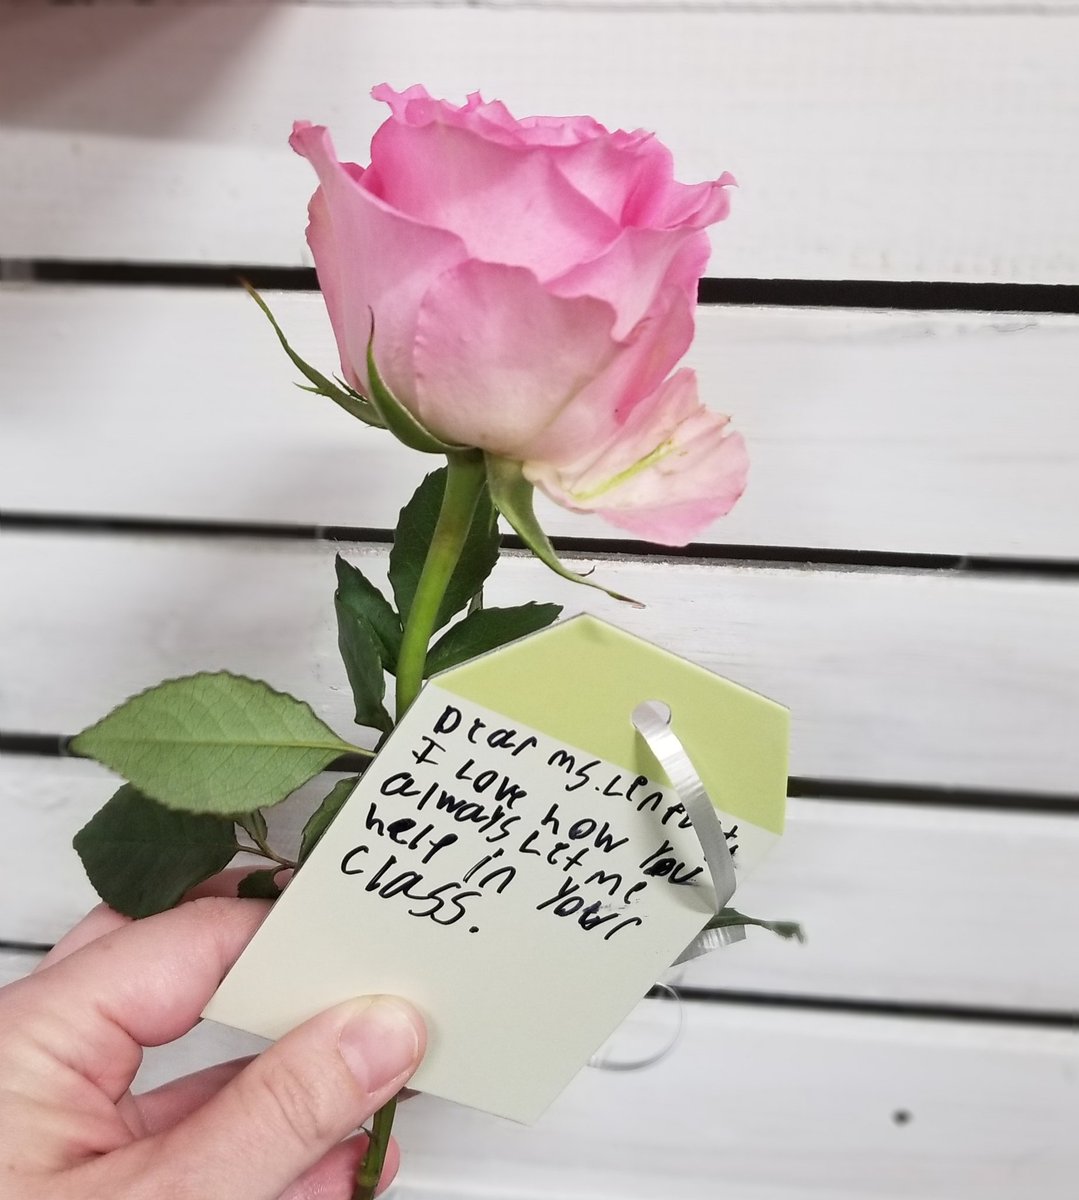 Dear ms.
I Love how you
always Let me
help in your
class.